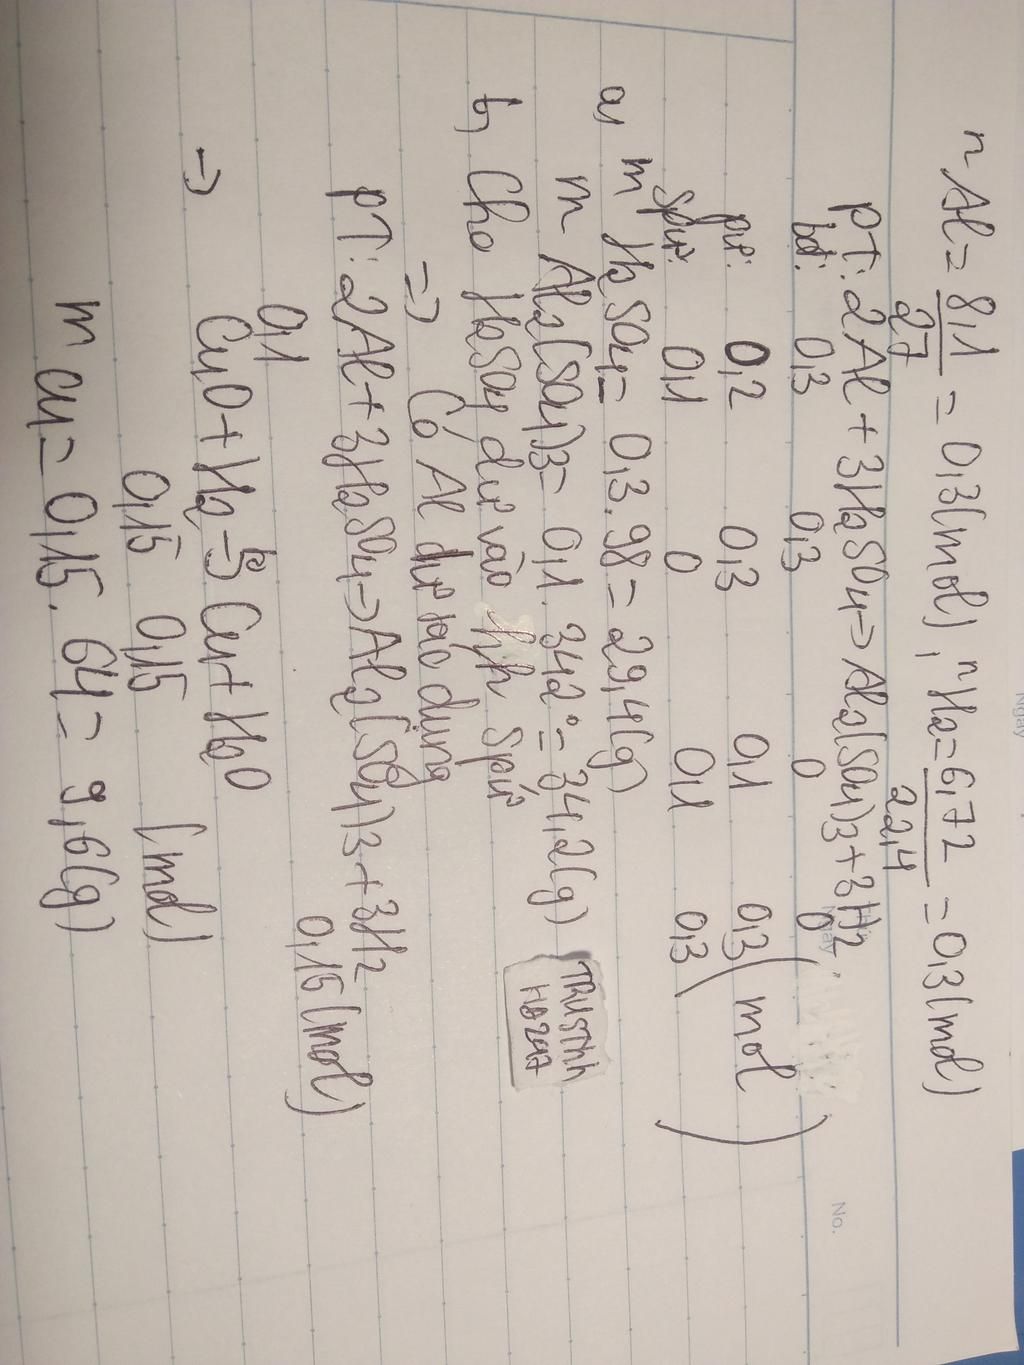 nAl = 8,1/27 = 0,3(mol), nH2 = 6,72/22,4 = 0,3(mol)
PT: 2Al + 3H2SO4 -> Al2(SO4)3 + 3H2
bđ: 0,3 0,3 0 0
pư: 0,2 0,3 0,1 0,3 (mol)
Spư: 0,1 0 0,1 0,3
a, m H2SO4 = 0,3.98 = 29,4(g)
m Al2(SO4)3 = 0,1.342 = 34,2(g)
b, Cho H2SO4 dư vào hh Spư
=> Có Al dư tác dụng
PT: 2Al + 3H2SO4 -> Al2(SO4)3 + 3H2
0,1 0,15(mol)
-> CuO + H2 -to-> Cu + H2O
0,15 0,15 (mol)
m Cu = 0,15.64 = 9,6(g)
Ngày
No.